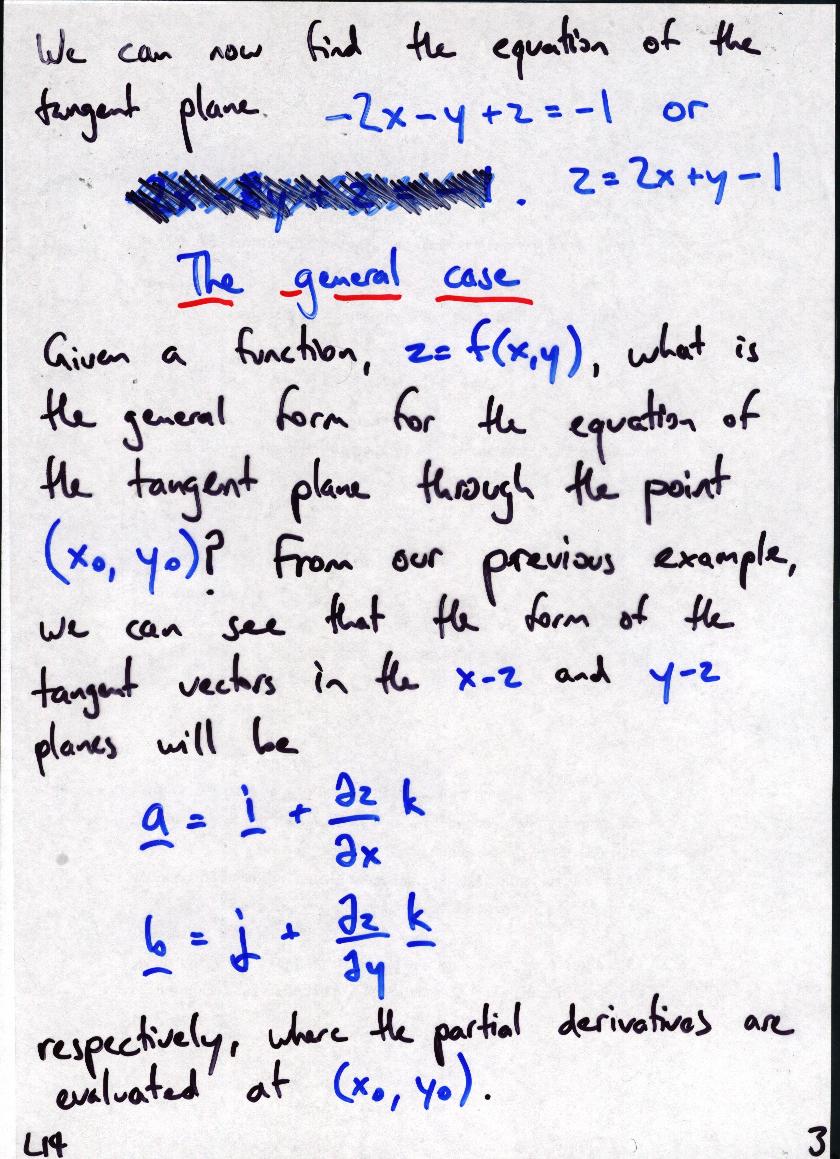 We can now find the equation of the
tangent plane. -2x-y+z=-1 or
. z=2x+y-1
The general case
Given a function, z=f(x,y), what is
the general form for the equation of
the tangent plane through the point
(x₀, y₀)? From our previous example,
we can see that the form of the
tangent vectors in the x-z and y-z
planes will be
a = i + ∂z/∂x k
b = j + ∂z/∂y k
respectively, where the partial derivatives are
evaluated at (x₀, y₀).
L14 3